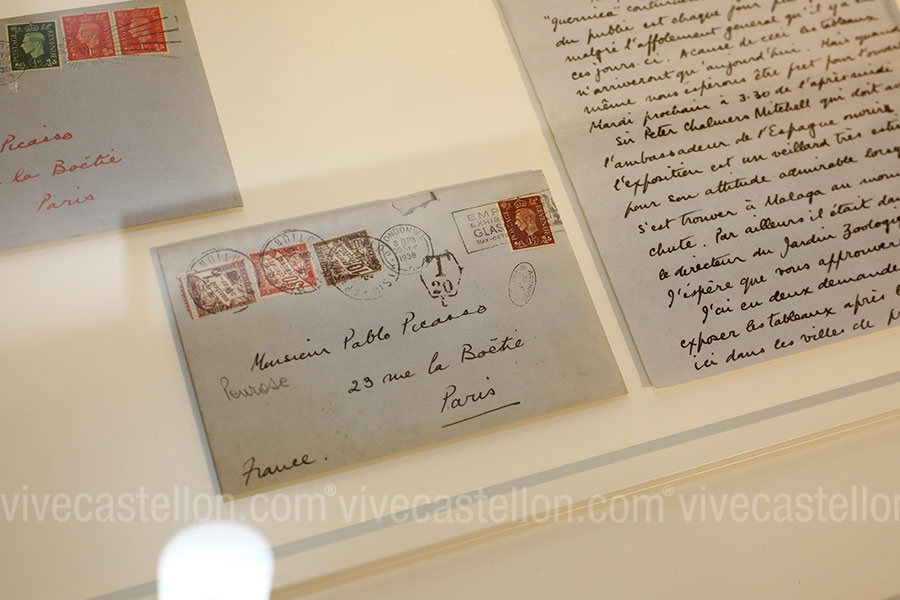 POSTAGE REVENUE
Picasso
la Boëtie
Paris
"Guernica"
du public est chaque jour
malgré l'affolement general qu'il y a
ces jours-ci. A cause de ceci les tableaux
n'arriveront qu'aujourd'hui. Mais quand
même nous espérons être pret pour l'
Mardi prochain à 3.30 de l'après-midi
Sir Peter Chalmers Mitchell qui doit
l'ambassadeur de l'Espagne ouvrira
l'exposition est un veillard très
pour son attitude admirable
s'est trouver à Malaga au
chute. Par ailleurs il était
le directeur du Jardin Zoologique
J'éspère que vous
J'ai eu deux demandes
exposer les tableaux après
ici dans les villes de
LONDON
1938
T
20
EMP
EXHIB
GLAS
MAY-OCT
Monsieur Pablo Picasso
Penrose
23 rue la Boëtie
Paris
France.
vivecastellon.com® vivecastellon.com® vivecastellon